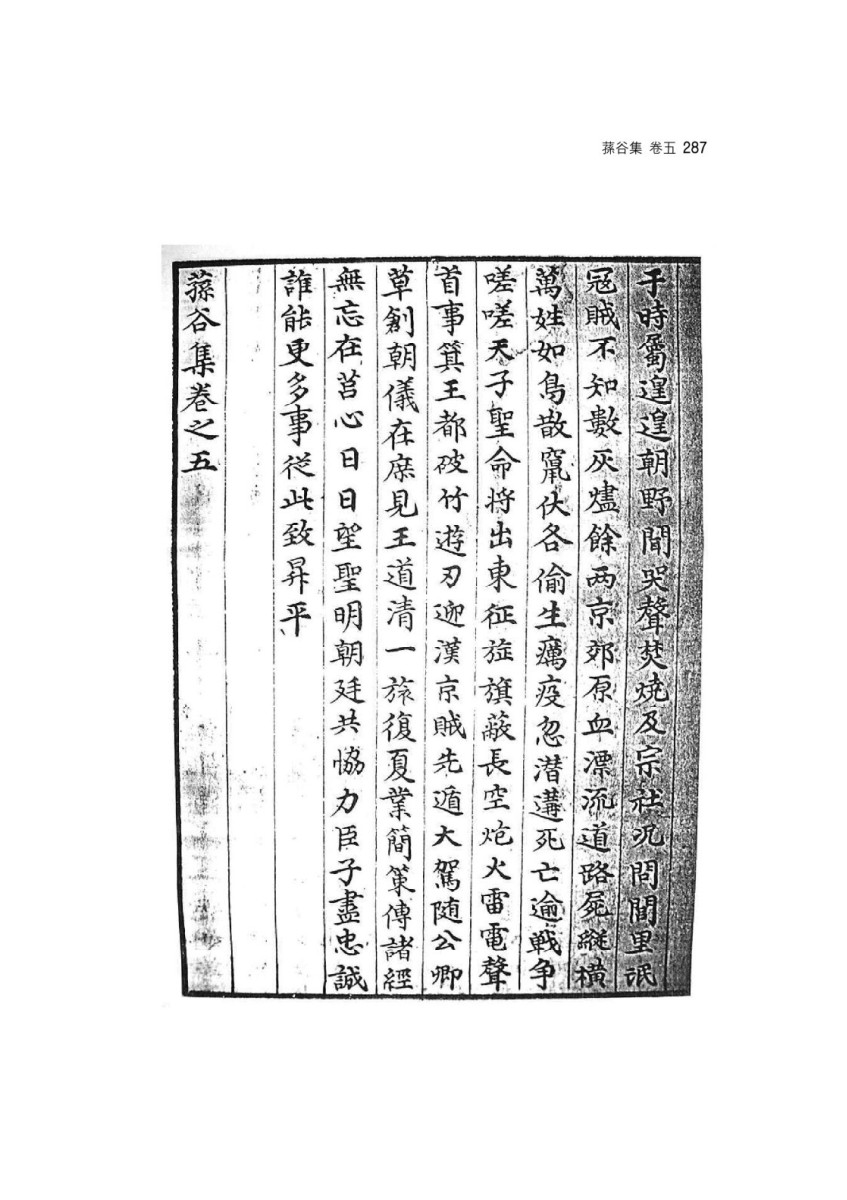 蓀谷集 卷五 287
于時屬遑遑朝野聞哭聲焚燒及宗社況問閭里氓
冦賊不知數灰燼餘兩京郊原血漂流道路屍縱橫
萬姓如鳥散竄伏各偷生癘疫忽潛遘死亡逾戰争
嗟嗟天子聖命将出東征旌旗蔽長空炮火雷電聲
首事箕王都破竹遊刃迎漢京賊先遁大駕随公卿
草創朝儀在庶見王道清一旅復夏業簡策傳諸經
無忘在莒心日日望聖明朝廷共恊力臣子盡忠誠
誰能更多事從此致昇平
蓀谷集卷之五